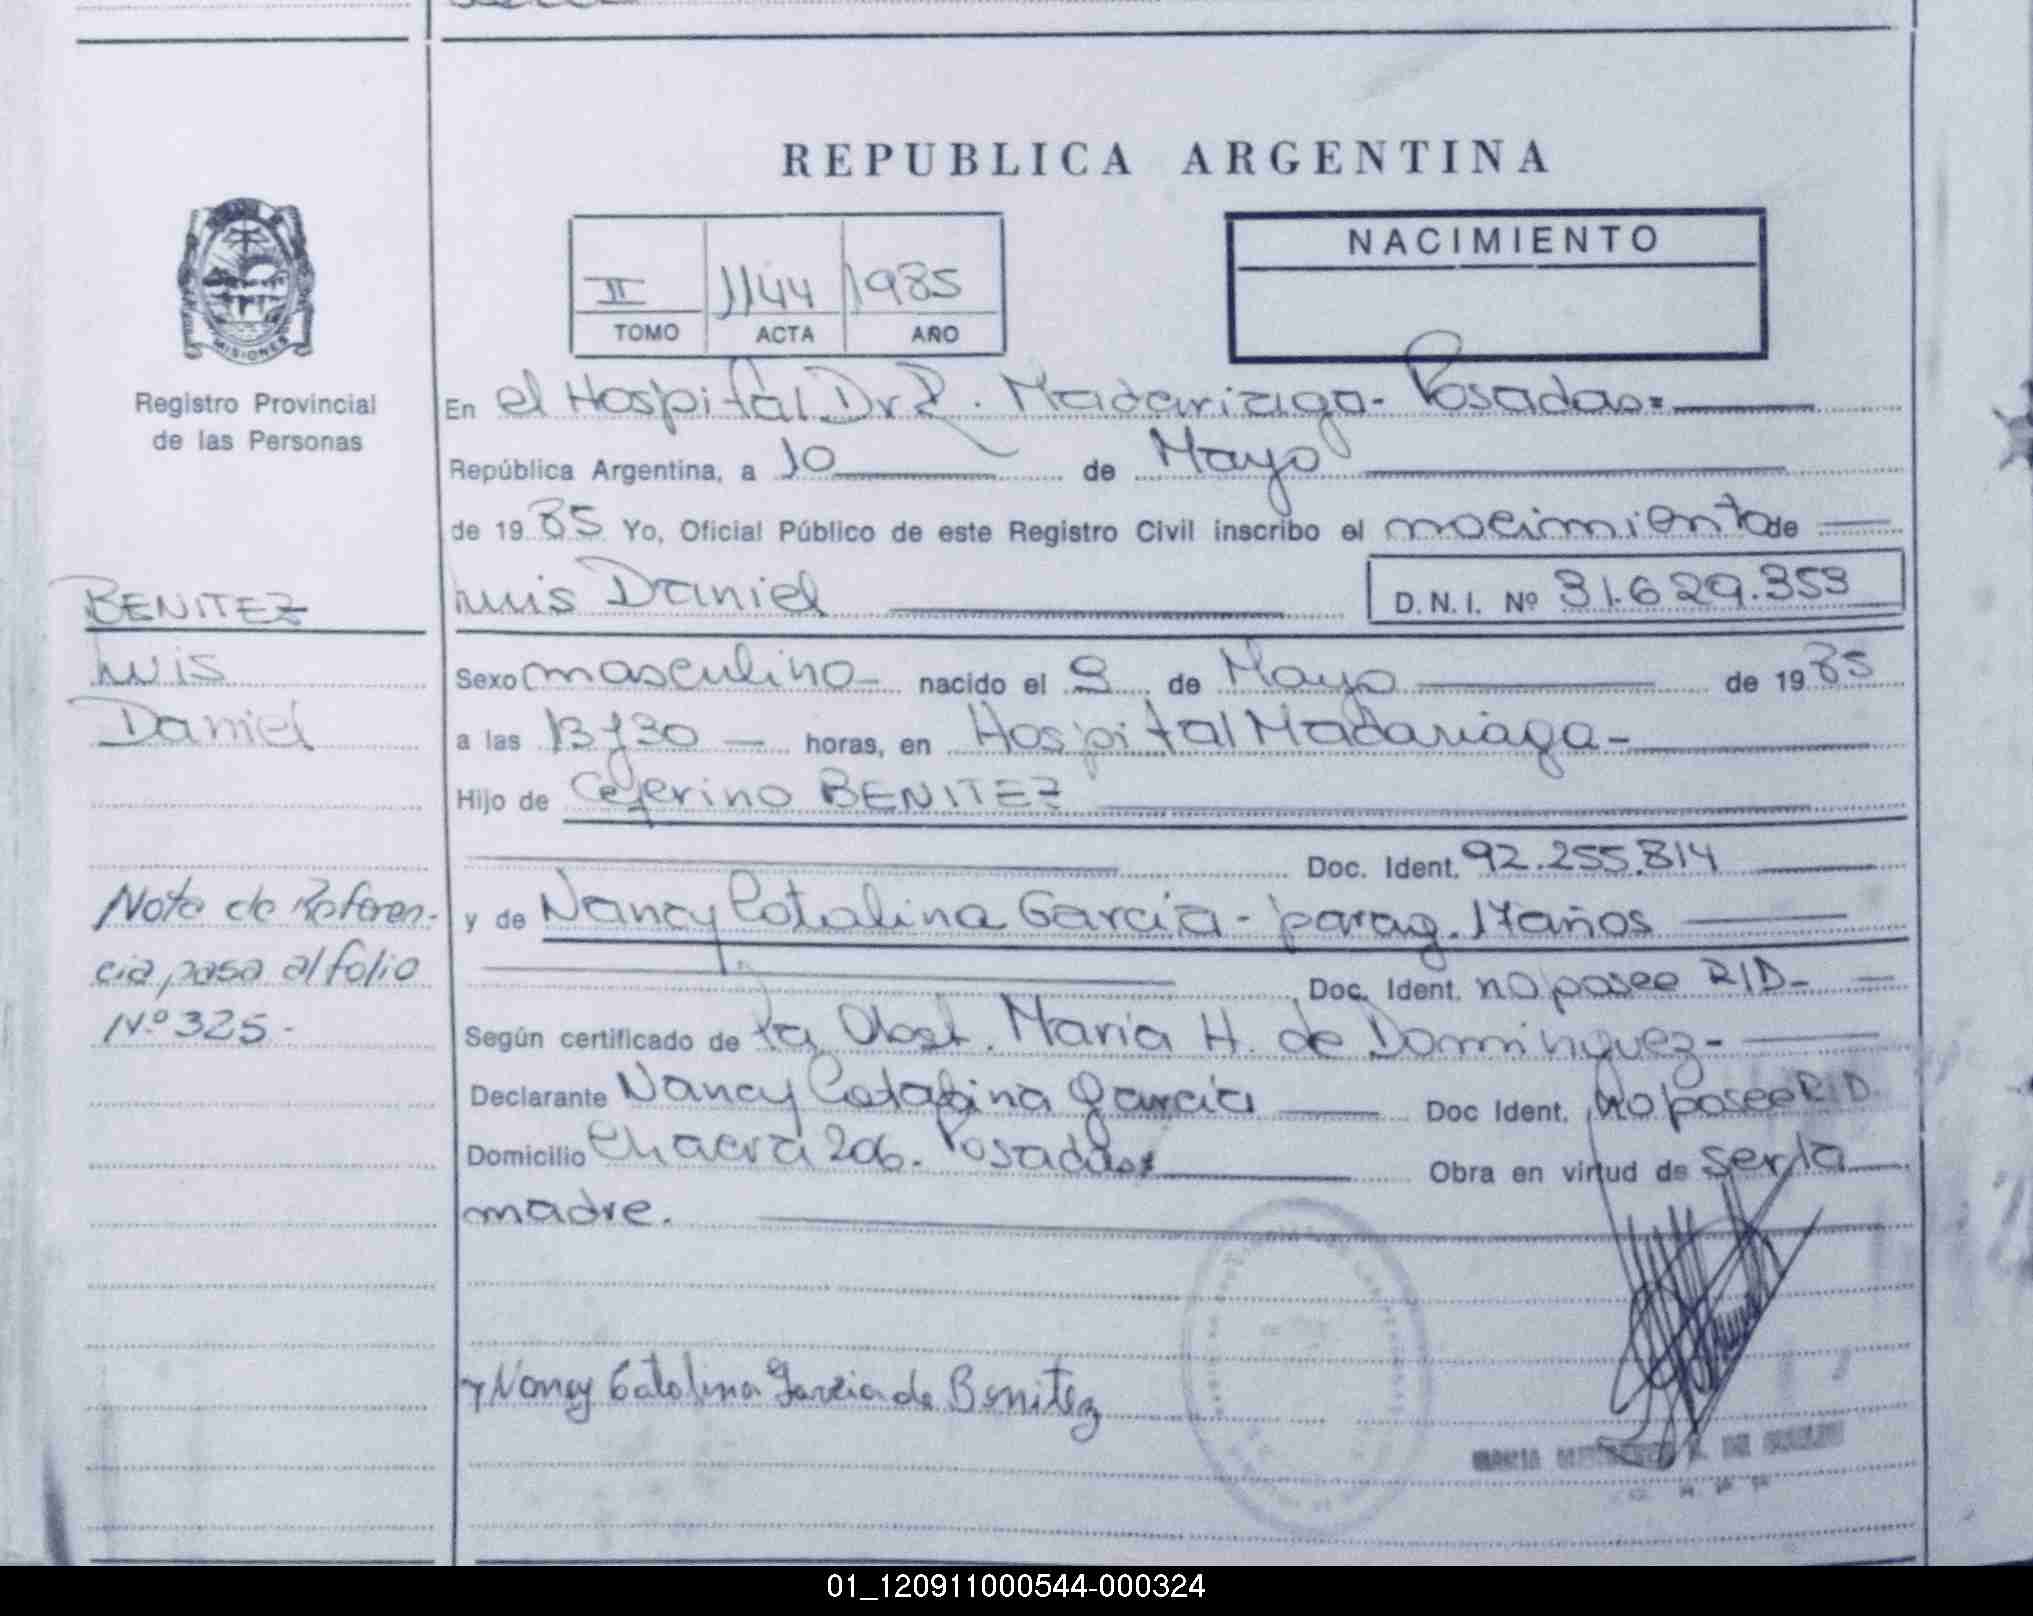 REPUBLICA ARGENTINA
NACIMIENTO
II 1144 1985
TOMO ACTA AÑO
MISIONES
Registro Provincial
de las Personas
En el Hospital Dr R. Madariaga - Posadas=
República Argentina, a 10 de Mayo
de 1985 Yo, Oficial Público de este Registro Civil inscribo el nacimiento de
BENITEZ
Luis Daniel D.N.I. Nº 31.629.353
Luis
Daniel
Sexo masculino nacido el 9 de Mayo de 1985
a las 13y30 horas, en Hospital Madariaga -
Hijo de Ceferino BENITEZ
Doc. Ident. 92.255.814
Nota de Referen-
cia pasa al folio
Nº 325 -
y de Nancy Catalina Garcia - parag. 17 años
Doc. Ident. no posee RID -
Según certificado de la Obst. Maria H. de Dominguez -
Declarante Nancy Catalina Garcia Doc Ident. No posee RID
Domicilio Chacra 206. Posadas Obra en virtud de ser la
madre.
Nancy Catalina Garcia de Benitez
MARIA DE
01_120911000544-000324